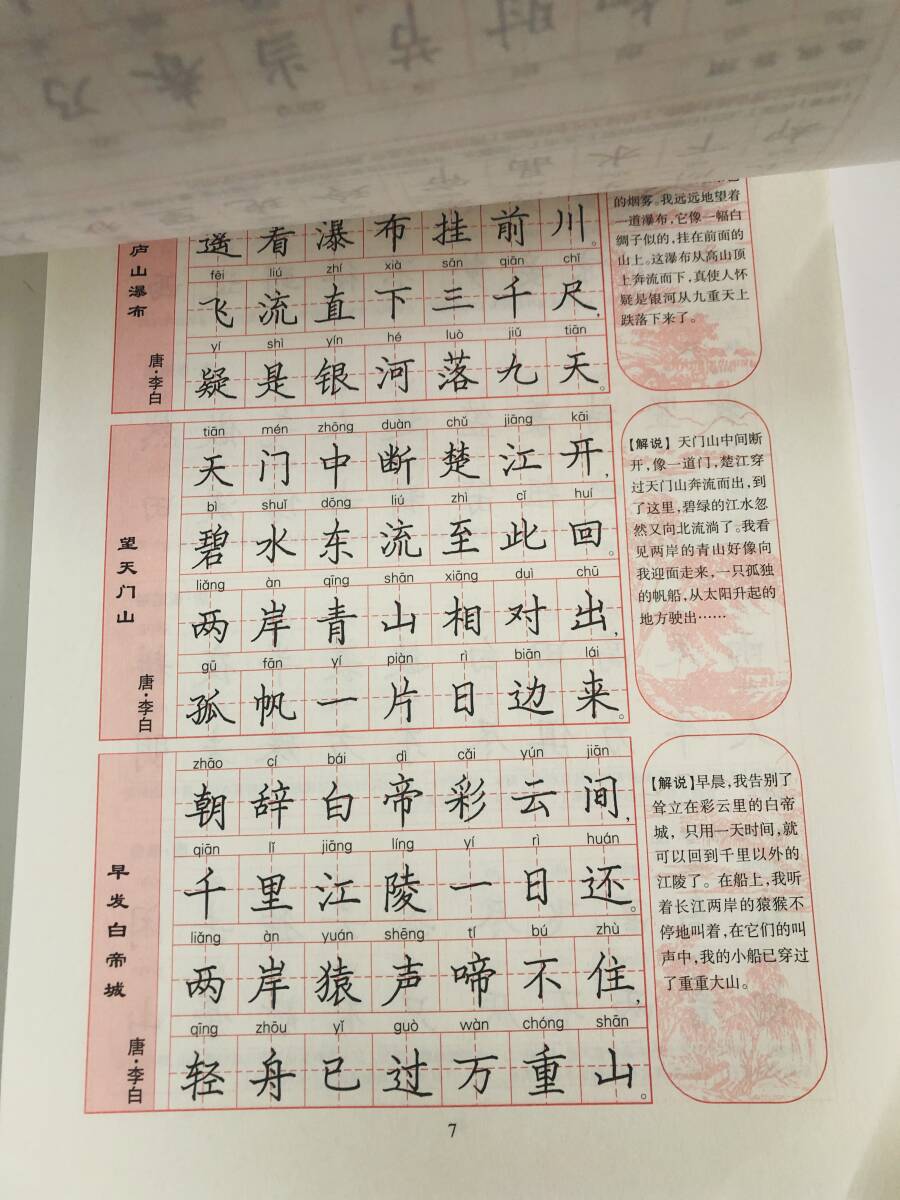 当春乃
时节
庐山瀑布
唐·李白
遥看瀑布挂前川。
fēi liú zhí xià sān qiān chǐ
飞流直下三千尺,
yí shì yín hé luò jiǔ tiān
疑是银河落九天。
的烟雾。我远远地望着
一道瀑布,它像一幅白
绸子似的,挂在前面的
山上。这瀑布从高山顶
上奔流而下,真使人怀
疑是银河从九重天上
跌落下来了。
望天门山
唐·李白
tiān mén zhōng duàn chǔ jiāng kāi
天门中断楚江开,
bì shuǐ dōng liú zhì cǐ huí
碧水东流至此回。
liǎng àn qīng shān xiāng duì chū
两岸青山相对出,
gū fān yí piàn rì biān lái
孤帆一片日边来。
【解说】天门山中间断
开,像一道门,楚江穿
过天门山奔流而出,到
了这里,碧绿的江水忽
然又向北流淌了。我看
见两岸的青山好像向
我迎面走来,一只孤独
的帆船,从太阳升起的
地方驶出……
早发白帝城
唐·李白
zhāo cí bái dì cǎi yún jiān
朝辞白帝彩云间,
qiān lǐ jiāng líng yí rì huán
千里江陵一日还。
liǎng àn yuán shēng tí bú zhù
两岸猿声啼不住,
qīng zhōu yǐ guò wàn chóng shān
轻舟已过万重山。
【解说】早晨,我告别了
耸立在彩云里的白帝
城,只用一天时间,就
可以回到千里以外的
江陵了。在船上,我听
着长江两岸的猿猴不
停地叫着,在它们的叫
声中,我的小船已穿过
了重重大山。
7